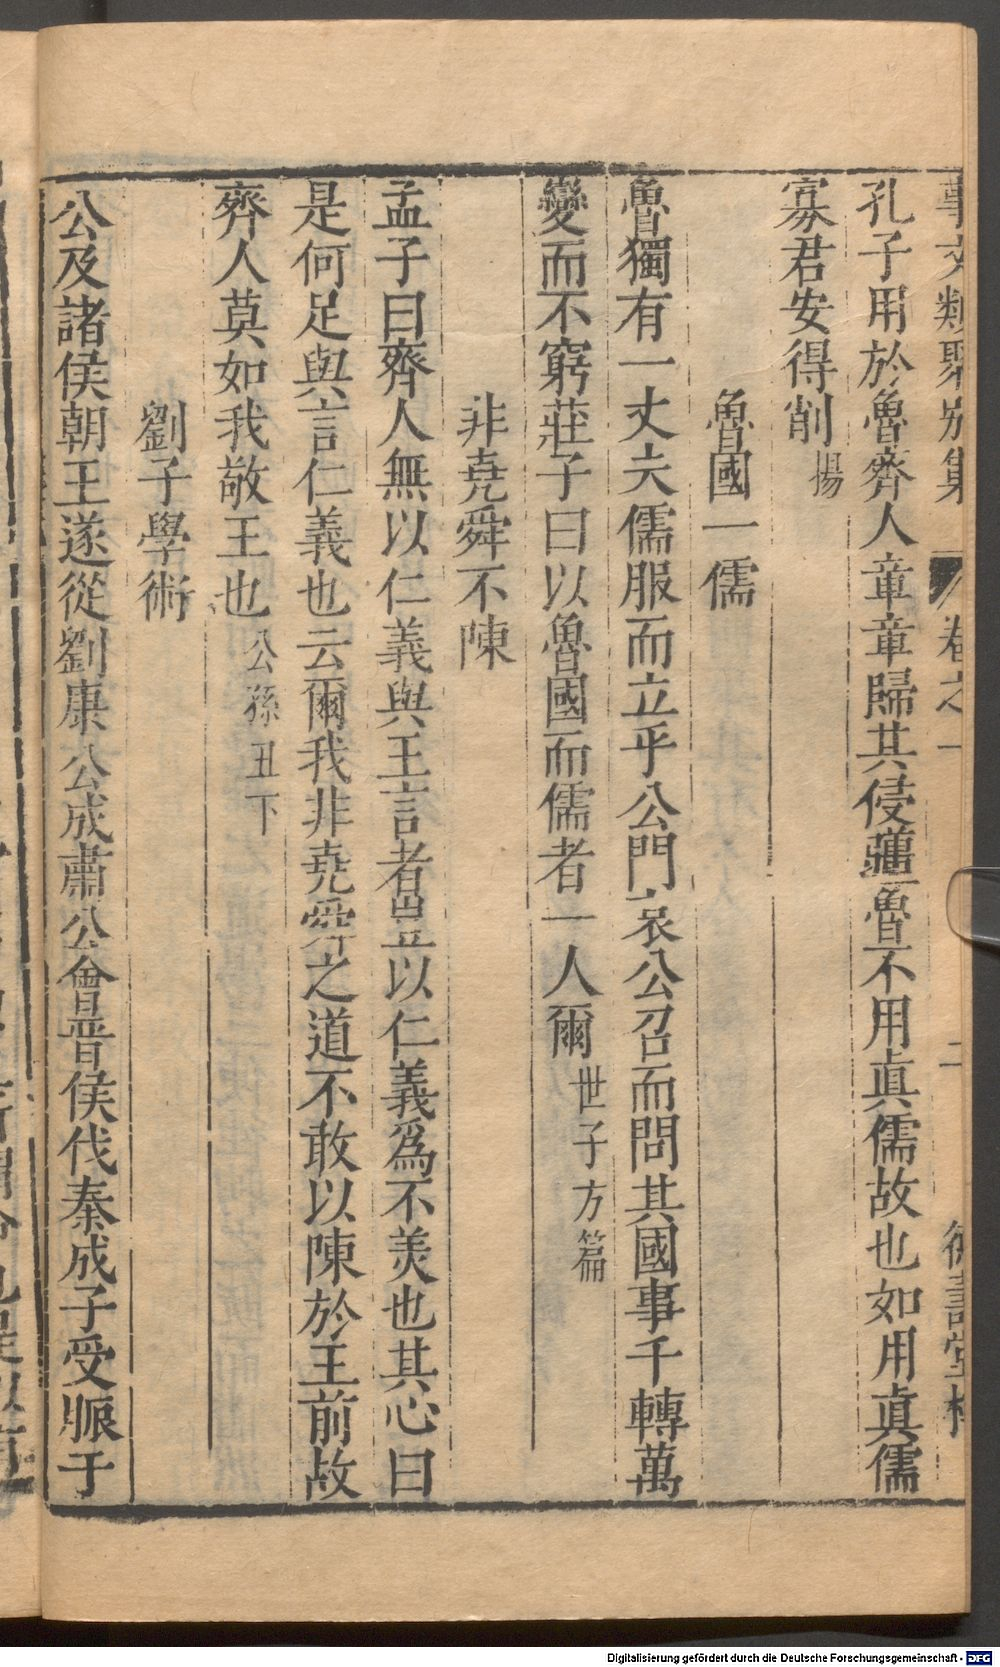 事文類聚別集 卷之一 二 德壽堂梓
孔子用於魯齊人章章歸其侵疆魯不用眞儒故也如用眞儒
寡君安得削 揚
魯國一儒
魯獨有一丈夫儒服而立乎公門哀公召而問其國事千轉萬
變而不窮莊子曰以魯國而儒者一人爾 世子方篇
非堯舜不陳
孟子曰齊人無以仁義與王言者豈以仁義爲不美也其心曰
是何足與言仁義也云爾我非堯舜之道不敢以陳於王前故
齊人莫如我敬王也 公孫丑下
劉子學術
公及諸侯朝王遂從劉康公成肅公會晋侯伐秦成子受脤于
Digitalisierung gefördert durch die Deutsche Forschungsgemeinschaft - DFG